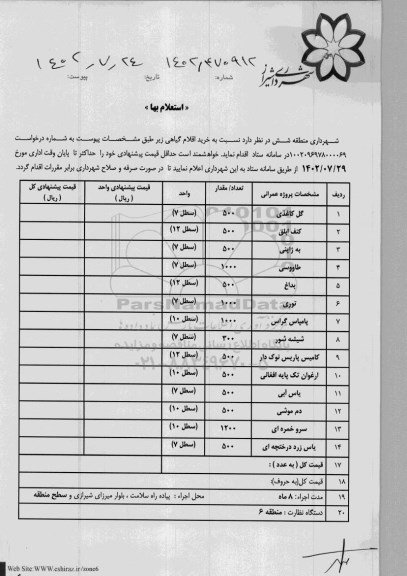 شهرداری شیراز
شماره: ۱۴۰۲/۴۷۰۹۱۲
تاریخ: ۱۴۰۲/۷/۲۴
پیوست:
« استعلام بها »
شهرداری منطقه شش در نظر دارد نسبت به خرید اقلام گیاهی زیر طبق مشخصات پیوست به شماره درخواست
۱۰۰۲۰۹۶۹۷۸۰۰۰۰۶۹در سامانه ستاد اقدام نماید. خواهشمند است حداقل قیمت پیشنهادی خود را حداکثر تا پایان وقت اداری مورخ
۱۴۰۲/۰۷/۲۹ از طریق سامانه ستاد به این شهرداری اعلام نمایید تا در صورت صرفه و صلاح شهرداری برابر مقررات اقدام گردد.
ردیف مشخصات پروژه عمرانی تعداد/ مقدار واحد قیمت پیشنهادی واحد ( ریال ) قیمت پیشنهادی کل ( ریال )
۱ گل کاغذی ۵۰۰ (سطل ۷)
۲ کنف ابلق ۵۰۰ (سطل ۱۲)
۳ به ژاپنی ۵۰۰ (سطل ۷)
۴ طاووسی ۱۰۰۰ (سطل ۷)
۵ بداغ ۵۰۰ (سطل ۱۲)
۶ توری ۱۰۰۰ (سطل ۷)
۷ پامپاس گراس ۱۰۰۰ (سطل ۱۰)
۸ شیشه شور ۳۰۰ (سطل ۷)
۹ کامیس پاریس نوک دار ۵۰۰ (سطل ۱۲)
۱۰ ارغوان تک پایه افغانی ۵۰۰ (سطل ۱۰)
۱۱ یاس آبی ۵۰۰ (سطل ۷)
۱۲ دم موشی ۵۰۰ (سطل ۱۰)
۱۳ سرو خمره ای ۱۲۰۰ (سطل ۱۰)
۱۴ یاس زرد درختچه ای ۵۰۰ (سطل ۷)
۱۷ قیمت کل ( به عدد ) :
۱۸ قیمت کل(به حروف):
۱۹ مدت اجراء: ۸ ماه محل اجراء : پیاده راه سلامت ، بلوار میرزای شیرازی و سطح منطقه
۲۰ دستگاه نظارت : منطقه ۶
ParsNamadData
۰۲۱-۸۸۳۴۹۶۷۰
Web Site:WWW.eshiraz.ir/zone6